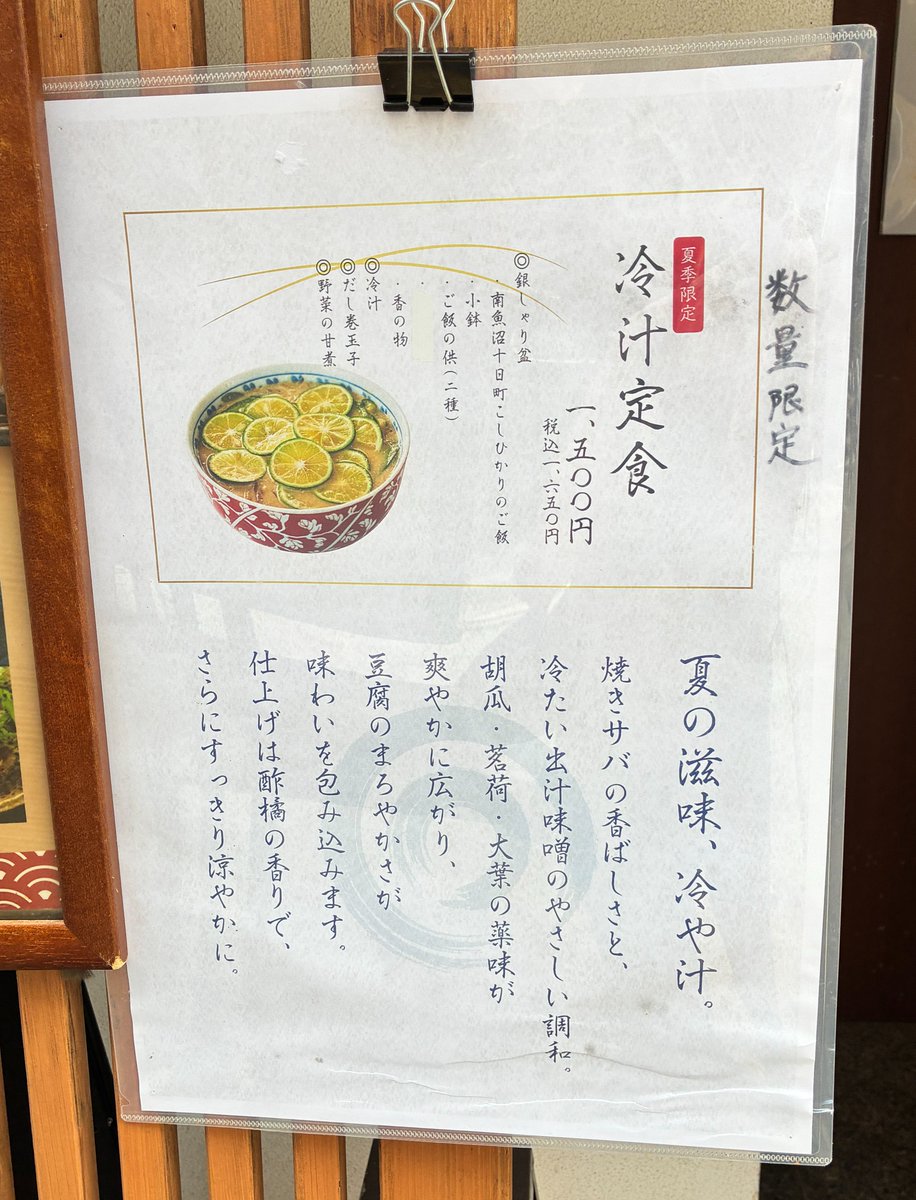 数量限定
夏季限定
冷汁定食
一、五〇〇円
税込一、六五〇円
◎銀しゃり盆
・南魚沼十日町こしひかりのご飯
・小鉢
・ご飯の供(二種)
・香の物
◎冷汁
◎だし巻玉子
◎野菜の甘煮
夏の滋味、冷や汁。
焼きサバの香ばしさと、
冷たい出汁味噌のやさしい調和。
胡瓜・茗荷・大葉の薬味が
爽やかに広がり、
豆腐のまろやかさが
味わいを包み込みます。
仕上げは酢橘の香りで、
さらにすっきり涼やかに。